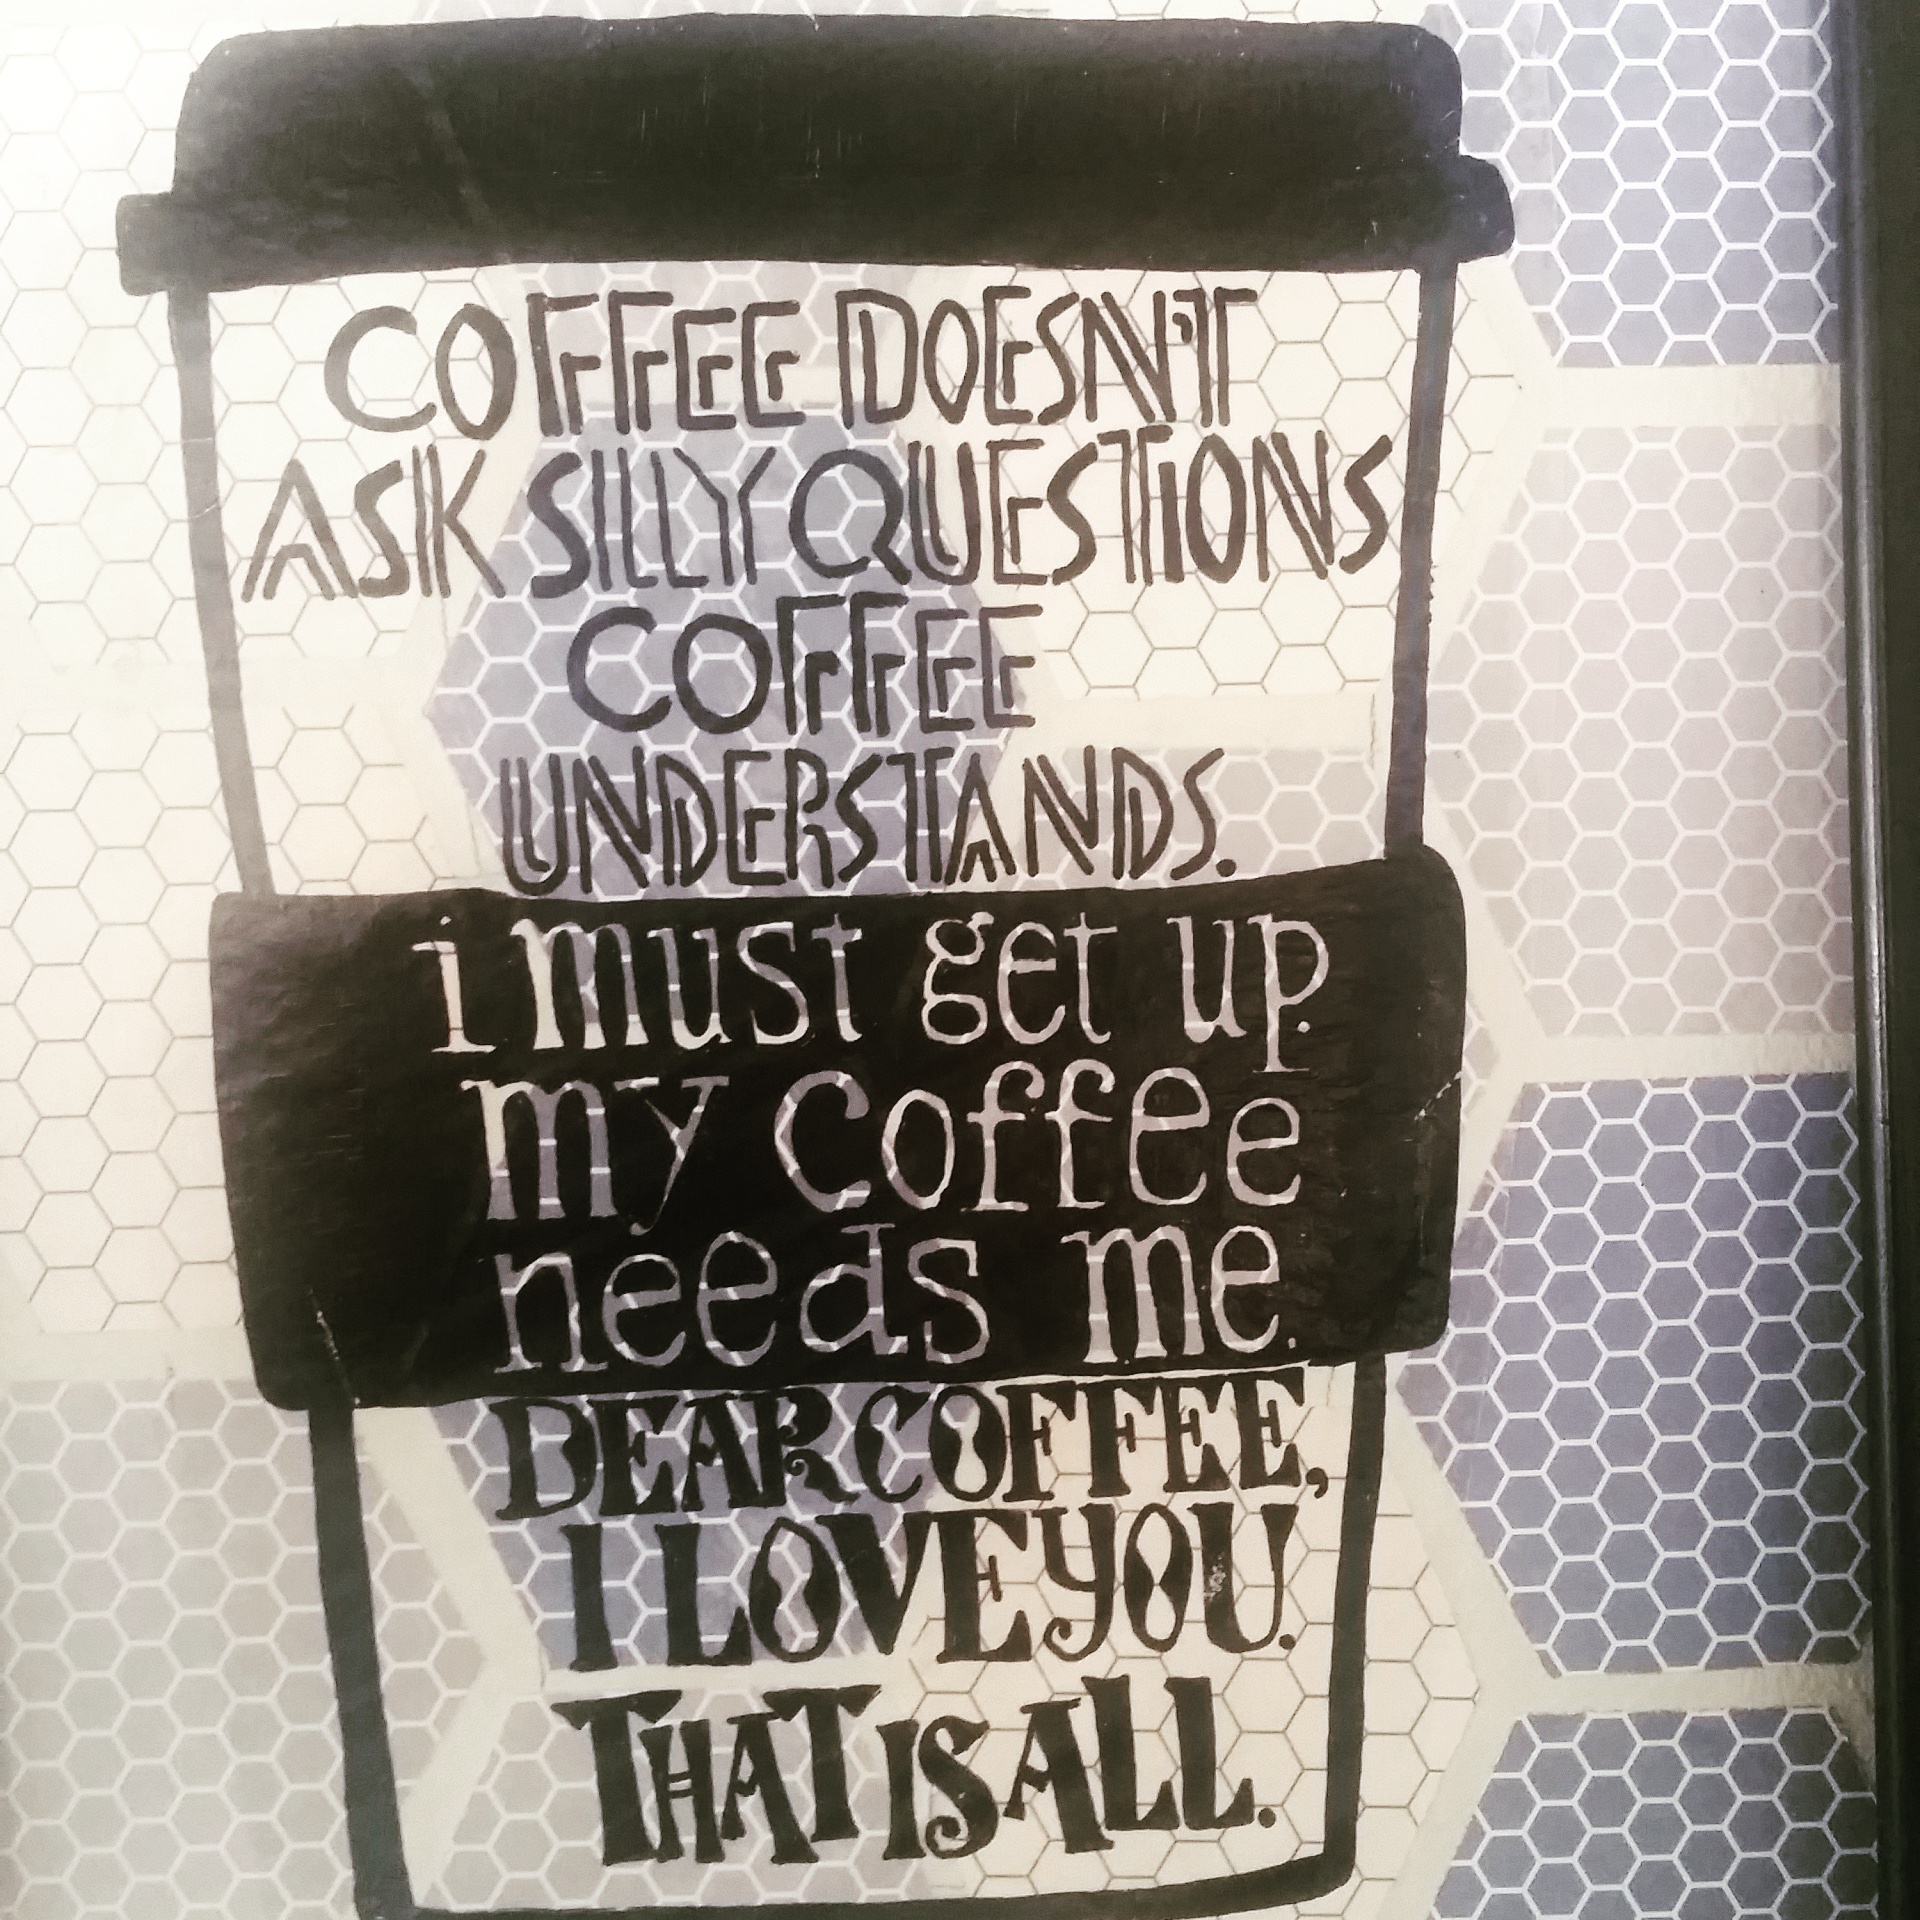 COFFEE DOESN'T
ASK SILLY QUESTIONS
COFFEE
UNDERSTANDS.
i must get up.
my coffee
needs me.
DEAR COFFEE,
I LOVE YOU.
THAT IS ALL.